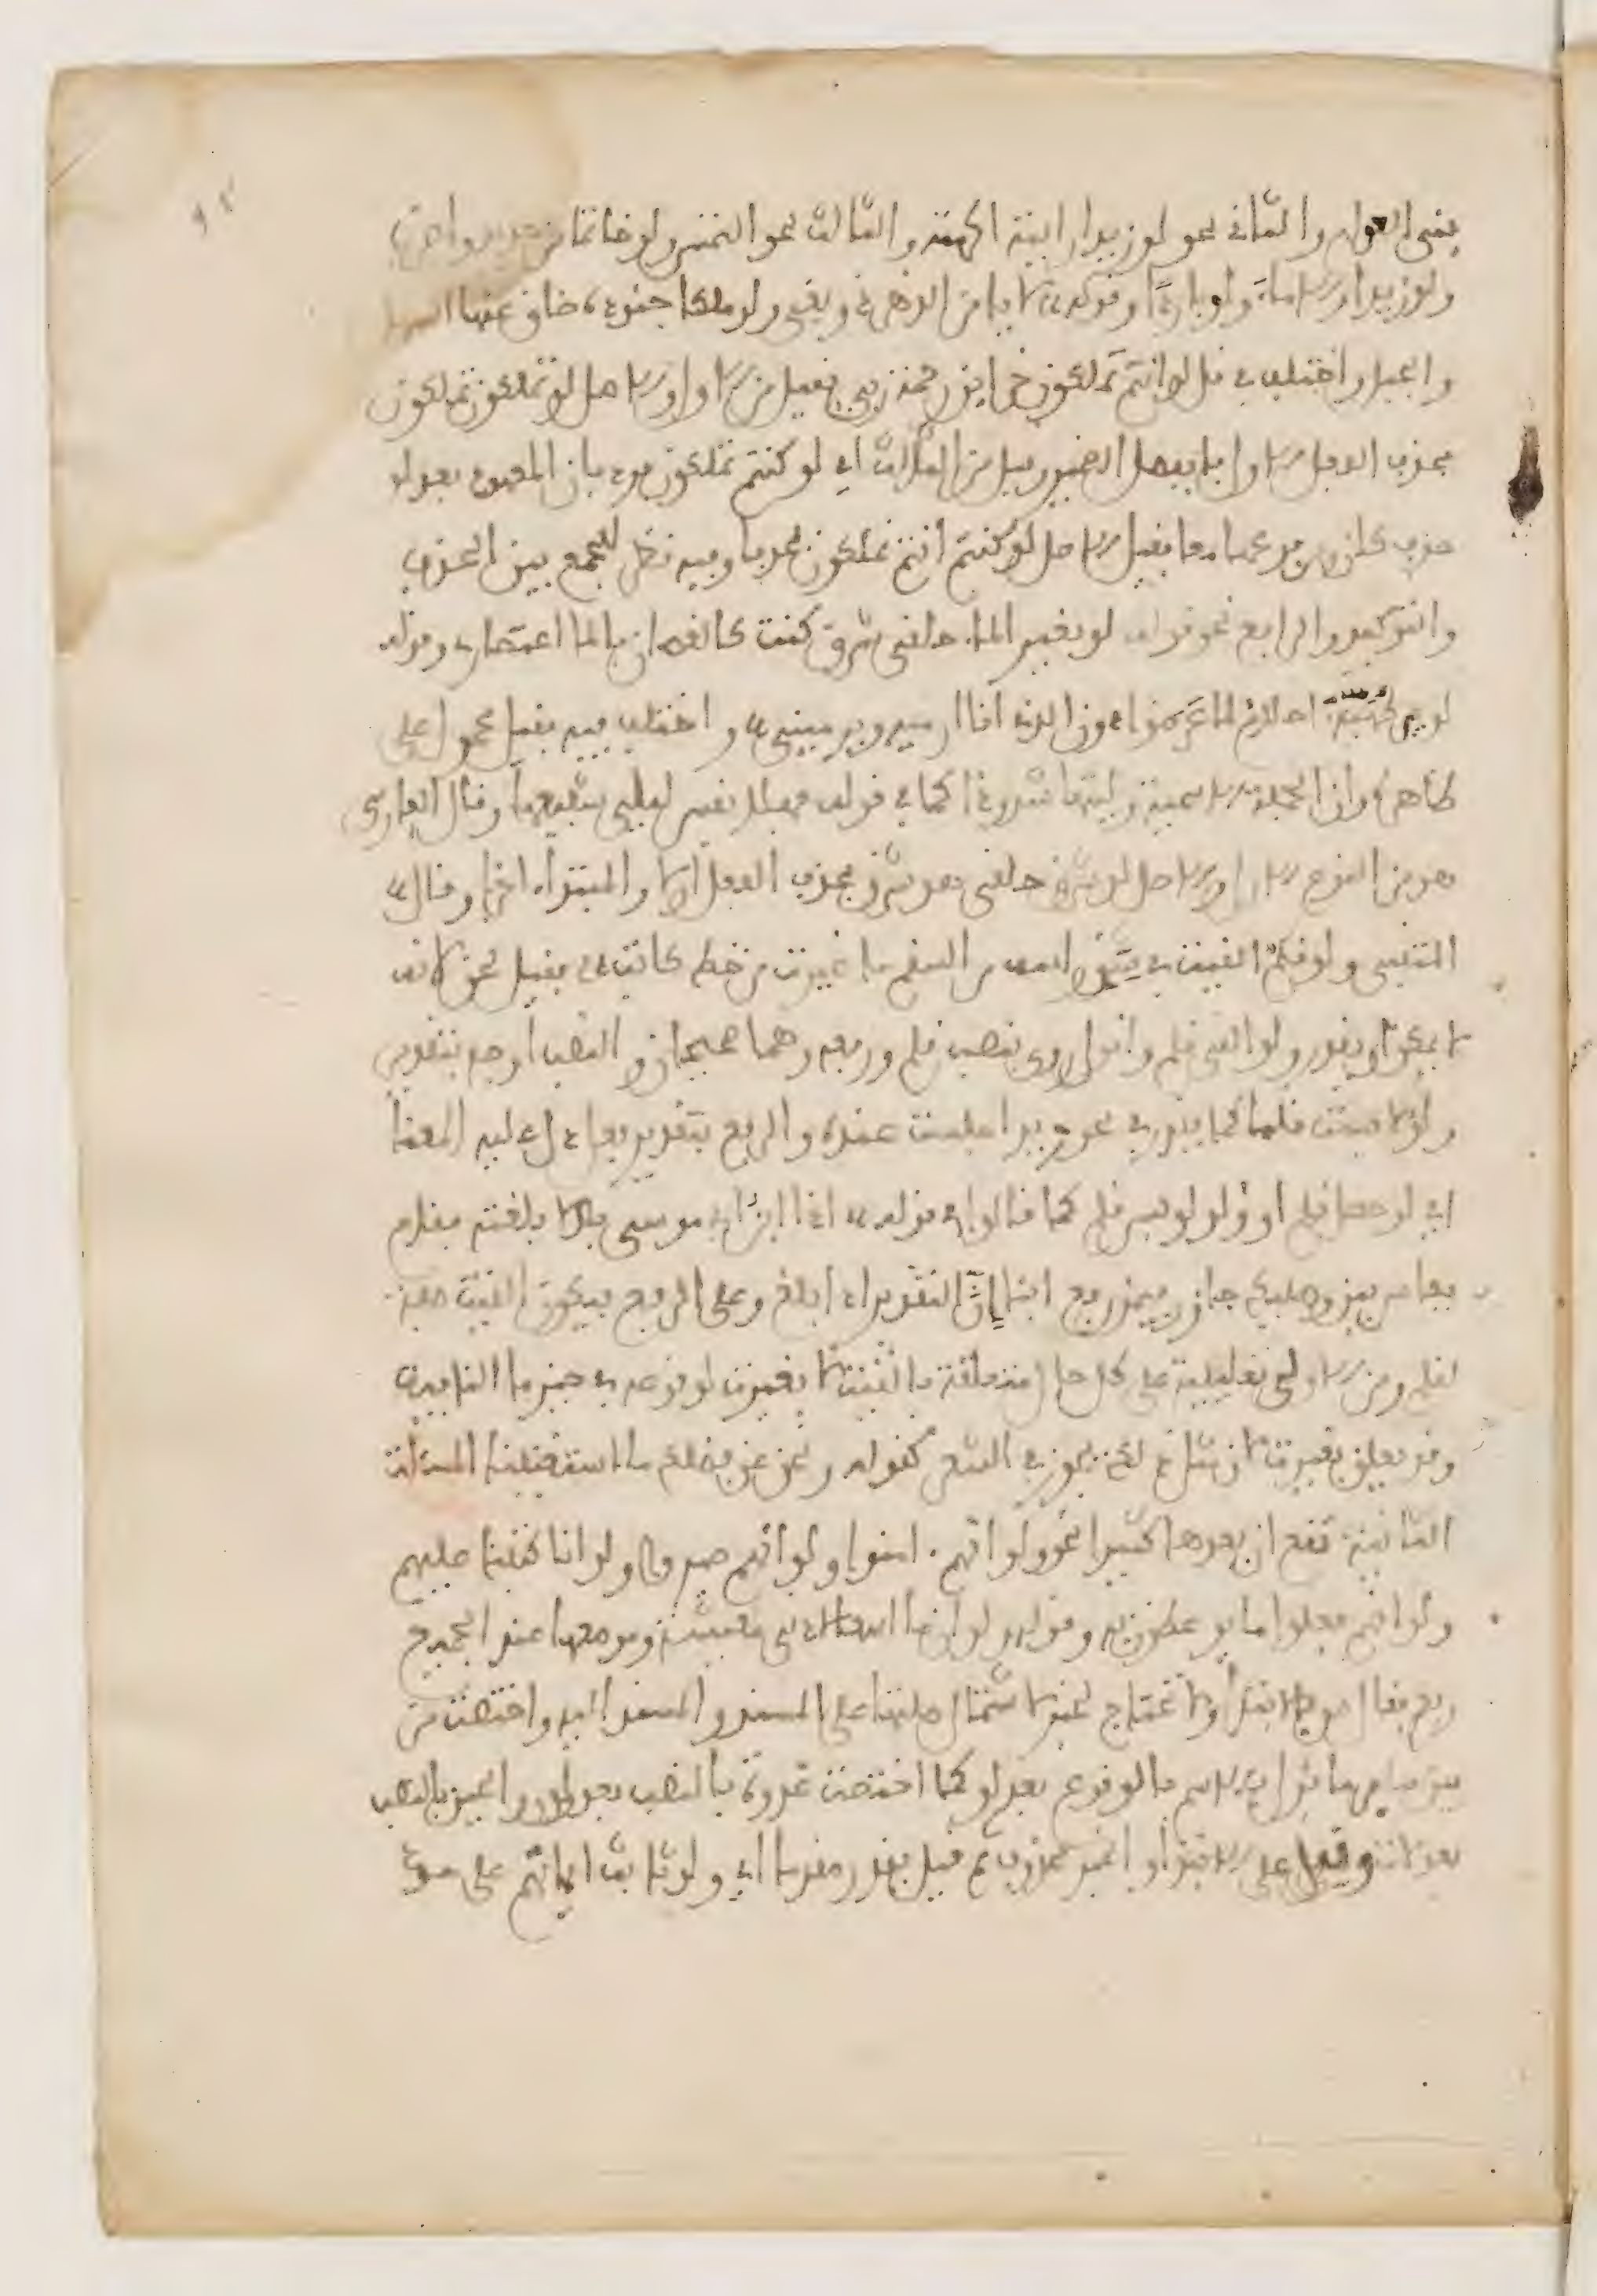 بنى القول والثاني نحو لو زيدا رايته اكرمته والثالث نحو التمس ولو خاتما من حديد واضرب
ولو زيدا ولا ماء ولو باردا وقوله لا يامن الدهر ذو بغي ولو ملكا جنوده ضاق عنها السهل
والجبل واختلف في قل لو انتم تملكون خزاين رحمة ربي فقيل من الاول والاصل لو تملكون تملكون
بحذف الفعل الاول فانفصل الضمير وقيل من الثالث اي لو كنتم تملكون ورد بان المعهود بعد لو
حذف كان ومرفوعها معا فقيل الاصل لو كنتم انتم تملكون فحذفا وفيه نظر للجمع بين الحذف
والتوكيد والرابع نحو قوله لو بغير الماء حلقي شرق كنت كالغصان بالماء اعتصاري وقوله
لو في طهية احلام لما عرضوا دون الذي انا ارميه ويرميني واختلف فيه فقيل محمول على
ظاهره وان الجملة الاسمية وليتها شذوذا كما في قوله فهلا نفس ليلى شفيعها وقال الفارسي
هو من النوع الاول والاصل لو شرق حلقي هو شرق فحذف الفعل اولا والمبتدا اخرا وقال
المتنبي ولو قلم القيت في شق راسه من السقم ما غيرت من خط كاتب فقيل لحن لانه
لا يمكن ان يقدر ولو القي قلم واقول روي بنصب قلم ورفعه وهما صحيحان والنصب اوجه بتقدير
ولو لابست قلما كما يقدر في نحو زيدا حبست عنده والرفع بتقدير فعل دل عليه المعنى
اي لو حصل قلم او ولو لوبس قلم كما قالوا في قوله اذا ابن ابي موسى بلالا بلغته فقام
بفاس بين وصليك جازر فيمن رفع ابنا ان التقدير اذا ابلغ وعلى الرفع فيكون القيت صفة
لقلم ومن الاولى تعليلية على كل حال متعلقة بالقيت لا بغيرت لوقوعه في حيز ما النافية
وقد تعلق بغيرت لان مثل ذلك يجوز في الشعر كقوله ونحن عن فضلك ما استغنينا المسئلة
الثانية تقع ان بعدها كثيرا نحو ولو انهم امنوا ولو انهم صبروا ولو انا كتبنا عليهم
ولو انهم فعلوا ما يوعظون به وقوله ولو ان ما اسعى لادنى معيشة وموضعها عند الجميع
رفع فقال سيبويه بالابتدا ولا تحتاج لخبر لاشتمال صلتها على المسند والمسند اليه واختصت من
بين ساير ما يؤول بالاسم بالوقوع بعد لو كما اختصت غدوة بالنصب بعد لدن والحين بالنصب
بعد لات وقيل على الابتدا والخبر محذوف ثم قيل يقدر مقدما اي ولو ثابت ايمانهم على حد